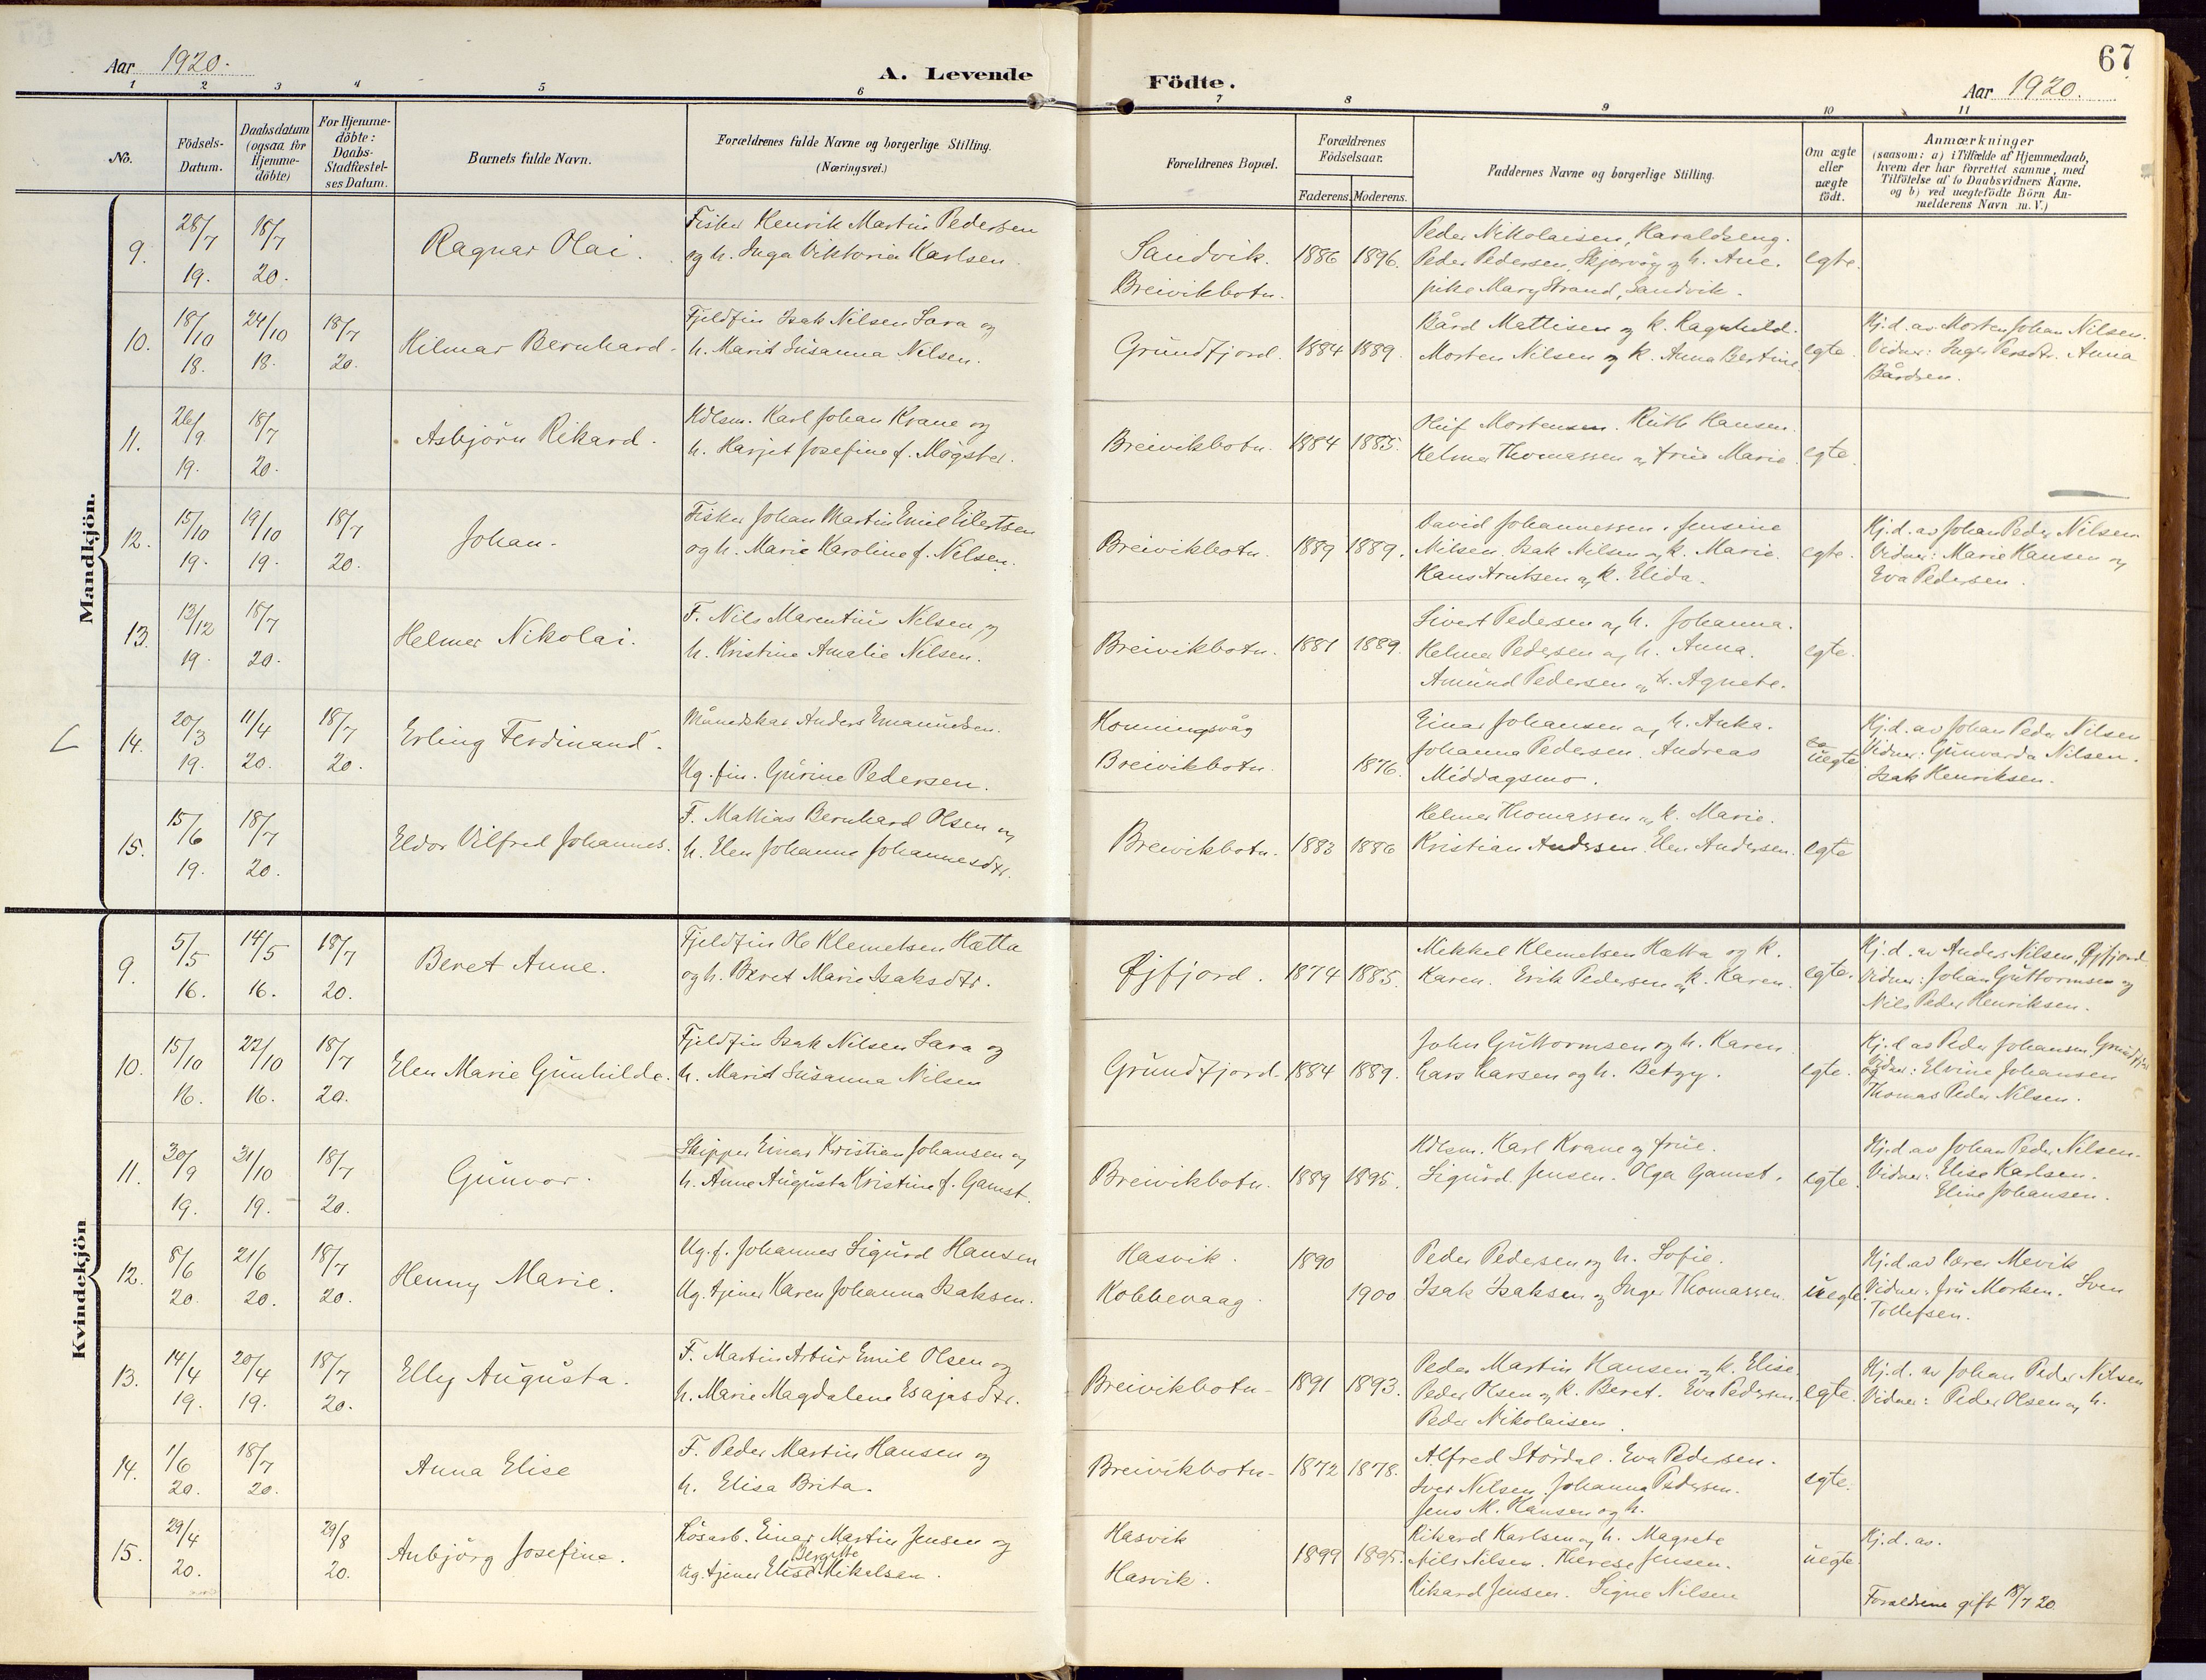 Aar 1920.
A. Levende
Födte.
67
Aar 1920.
1 2 3 4 5 6 7 8 9 10 11
No.
Födsels-Datum.
Daabsdatum (ogsaa for Hjemme-döbte)
For Hjemme-döbte: Daabs-Stadfæstel-ses Datum.
Barnets fulde Navn.
Forældrenes fulde Navne og borgerlige Stilling. (Næringsvei.)
Forældrenes Bopæl.
Forældrenes Födselsaar.
Faderens. Moderens.
Faddernes Navne og borgerlige Stilling.
Om ægte eller uægte födt.
Anmærkninger
(saasom: a) i Tilfælde af Hjemmedaab,
hvem der har forrettet samme, med
Tilföielse af to Daabsvidners Navne.
og b) ved uægtefödte Börn An-
melderens Navn m. V.)
Mandkjön.
9. 28/7 19. 18/7 20. Ragnar Olai.
Fisker Henrik Martin Pedersen
og h. Inga Viktoria Karlsen.
Sandvik.
Breivikbotn.
1886 1896.
Peder Nikolaisen, Haraldseng.
Peder Pedersen, Skjervøy og h. Ane.
pike Mary Strand, Sandvik.
egte.
10. 18/10 18. 24/10 18. 18/7 20. Hilmar Bernhard.
Fjeldfin Isak Nilsen Sara og
h. Marit Susanna Nilsen.
Grundfjord. 1884 1889.
Bård Mattisen og k. Ragnhild.
Morten Nilsen og k. Anna Bertine.
egte.
Hj.d. av Morten Johan Nilsen.
Vidner: Inger Persdtr. Anna
Bårdsen.
11. 26/9 19. 18/7 20. Asbjörn Rikard.
Hdlsm. Karl Johan Krane og
h. Harjet Josefine f. Møgster.
Breivikbotn. 1884 1885.
Oluf Mortensen. Ruth Hansen.
Helmer Thomassen og frue Marie.
egte.
12. 15/10 19. 19/10 19. 18/7 20. Johan.
Fisker Johan Martin Emil Eilertsen
og h. Marie Karoline f. Nilsen.
Breivikbotn. 1889 1889.
David Johannessen. Jensine
Nilsen. Isak Nilsen og k. Marie.
Hans Arntsen og k. Elida.
egte.
Hj.d. av Johan Peder Nilsen
Vidner: Marie Hansen og
Eva Pedersen.
13. 13/12 19. 18/7 20. Helmer Nikolai.
F. Nils Marentius Nilsen og
h. Kristine Amalie Nilsen.
Breivikbotn. 1881 1889.
Sivert Pedersen og h. Johanna.
Helmer Pedersen og h. Anna.
Amund Pedersen og h. Agnete.
egte.
14. 20/3 19. 11/4 20. 18/7 20. Erling Ferdinand.
Månedskar Anders Emanuelsen.
Ug. fin. Gurine Pedersen.
Honningsvåg
Breivikbotn. 1876.
Einar Johansen og h. Anka.
Johanna Pedersen. Andreas
Middagsmo.
uegte
Hj.d. av Johan Peder Nilsen
Vidner: Gunvarda Nilsen.
Isak Henriksen.
15. 15/6 19. 18/7 20. Eldor Vilfred Johannes.
F. Mathias Bernhard Olsen og
h. Elen Johanne Johannesdtr.
Breivikbotn. 1883 1886
Helmer Thomassen og k. Marie.
Kristian Andersen. Elen Andersen.
egte
Kvindekjön
9. 5/5 16. 14/5 16. 18/7 20. Beret Anne.
Fjeldfin Ole Klemetsen Hætta
og h. Beret Marie Isaksdtr.
Øjfjord. 1874 1885.
Mikkel Klemetsen Hætta og k.
Karen. Erik Pedersen og k. Karen.
egte.
Hj.d. av Anders Nilsen, Øjfjord.
Vidner: Johan Guttormsen og
Nils Peder Henriksen.
10. 15/10 16. 22/10 16. 18/7 20. Elen Marie Gunhilde.
Fjeldfin Isak Nilsen Sara og
h. Marit Susanna Nilsen
Grundfjord. 1884 1889.
John Guttormsen og h. Karen
Lars Larsen og h. Betzy.
egte.
Hj.d av Peder Johansen, Grundfjord
Vidner: Elvine Johansen
Thomas Peder Nilsen.
11. 30/9 19. 31/10 19. 18/7 20. Gunvor.
Skipper Einar Kristian Johansen og
h. Anne Augusta Kristine f. Gamst.
Breivikbotn. 1889 1895.
Hdlsm. Karl Krane og frue.
Sigurd Jensen. Olga Gamst.
egte.
Hj.d av Johan Peder Nilsen.
Vidner: Elise Karlsen.
Eline Johansen.
12. 8/6 20. 21/6 20. 18/7 20. Henny Marie.
Ug. f. Johannes Sigurd Hansen
Ug. tjener Karen Johanna Isaksen.
Hasvik. 1890
Kobbevaag. 1900
Peder Pedersen og h. Sofie.
Isak Isaksen og Inger Thomassen.
uegte.
Hj.d av lærer Mevik
Vidner: fru Morken. Sven
Tollefsen.
13. 14/4 19. 20/4 19. 18/7 20. Elly Augusta.
F. Martin Artur Emil Olsen og
h. Marie Magdalene Esajasdtr.
Breivikbotn. 1891 1893.
Peder Martin Hansen og k. Elise.
Peder Olsen og k. Beret. Eva Pedersen.
Peder Nikolaisen.
egte.
Hj.d. av Johan Peder Nilsen
Vidner: Peder Olsen og h.
14. 1/6 20. 18/7 20. Anna Elise
F. Peder Martin Hansen og
h. Elisa Brita.
Breivikbotn. 1872 1878.
Alfred Stordal. Eva Pedersen.
Iver Nilsen. Johanna Pedersen.
Jens M. Hansen og h.
egte.
15. 29/4 20. 29/8 20. Anbjörg Josefine.
Løsarb. Einar Martin Jensen og
Bergitte
ug. tjener Elise Mikelsen.
Hasvik
Hasvik.
1899 1895.
Rikard Karlsen og h. Magrete
Nils Nilsen. Therese Jensen.
Rikard Jensen. Signe Nilsen
uegte
Hj.d. av.
Forældrene gift 18/7 20.